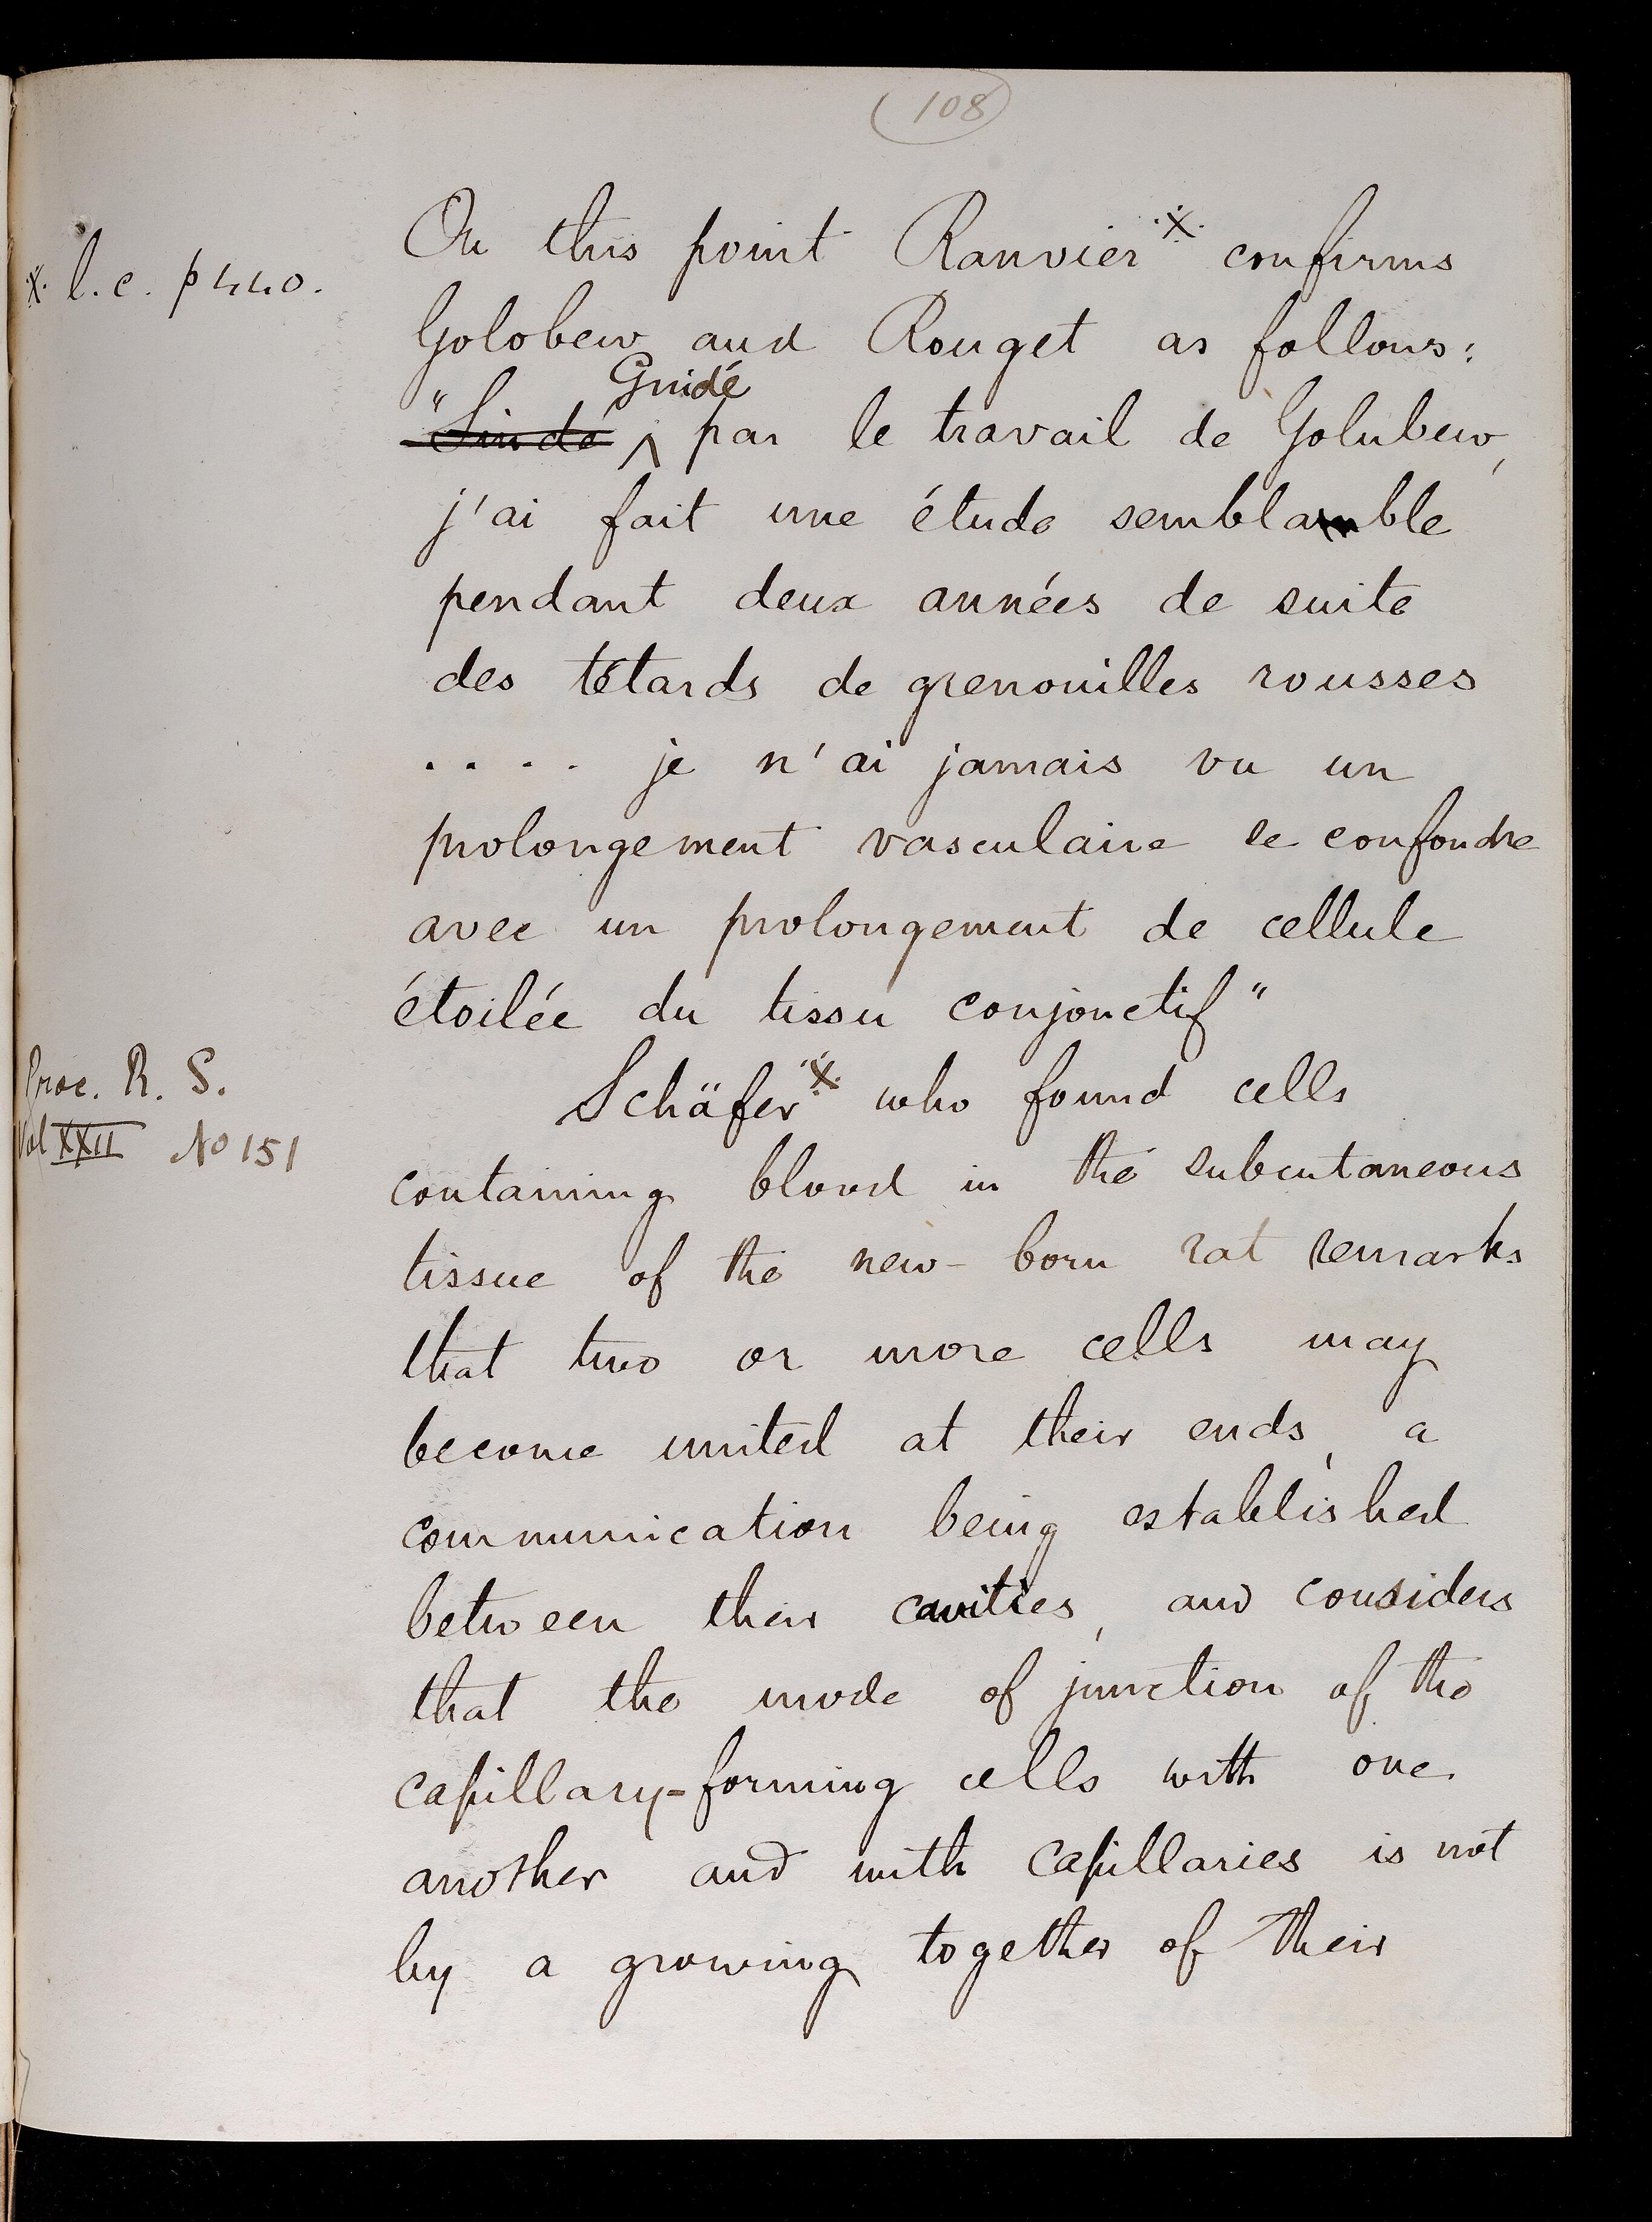 108
On this point Ranvier※ confirms
※ l.c. p 440.
Golobew and Rouget as follows:
Guidé
"Lindé ‸ par le travail de Golubew,
j'ai fait une étude semblamble
pendant deux années de suite
des tétards de grenouilles rousses
.... je n'ai jamais vu un
prolongement vasculaire se confondre
avec un prolongement de cellule
étoilée du tissu conjonctif"
Proc. R. S.
Vol XXII No 151
Schäfer※ who found cells
containing blood in the subcutaneous
tissue of the new-born rat remarks
that two or more cells may
become united at their ends, a
communication being established
between their cavities, and considers
that the mode of junction of the
capillary-forming cells with one
another and with capillaries is not
by a growing together of their